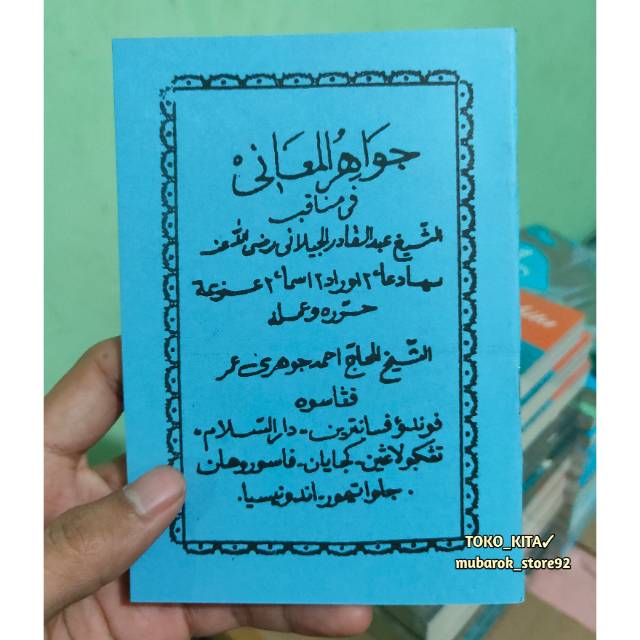 جَوَاهِرُ المَعَانِيْ
فى مناقب
الشّيخ عبد القادر الجيلانى رضي الله عنه
بهادعاء٢ اوراد٢ اسماء٢ عزيمة
حرّره وعمله
الشّيخ الحاجّ احمد جوهرى عمر
ڤڠاسوه
ڤوندوء ڤسانترين - دار السّلام -
تڠكولاڠين - كجايان - ڤاسوروهان
. جاوا تيمور - اندونيسيا .
TOKO_KITA✓
mubarok_store92